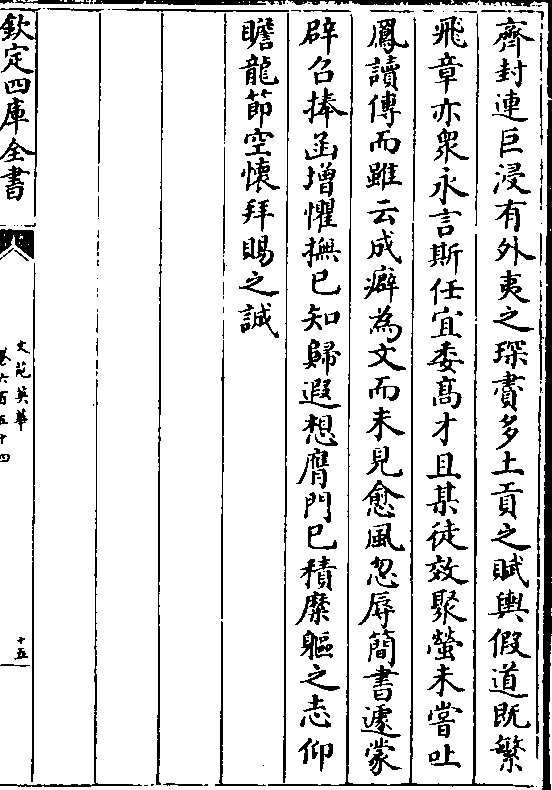 齊封連巨浸有外夷之琛賮多土貢之賦輿假道既繁
飛章亦衆永言斯任宜委髙才且某徒效聚螢未嘗吐
鳳讀傳而雖云成癖為文而未見愈風忽辱簡書遽蒙
辟召捧函增懼撫已知歸遐想膺門已積糜軀之志仰
瞻龍節空懷拜賜之誠
欽定四庫全書
文苑英華
卷六百五十四
十五